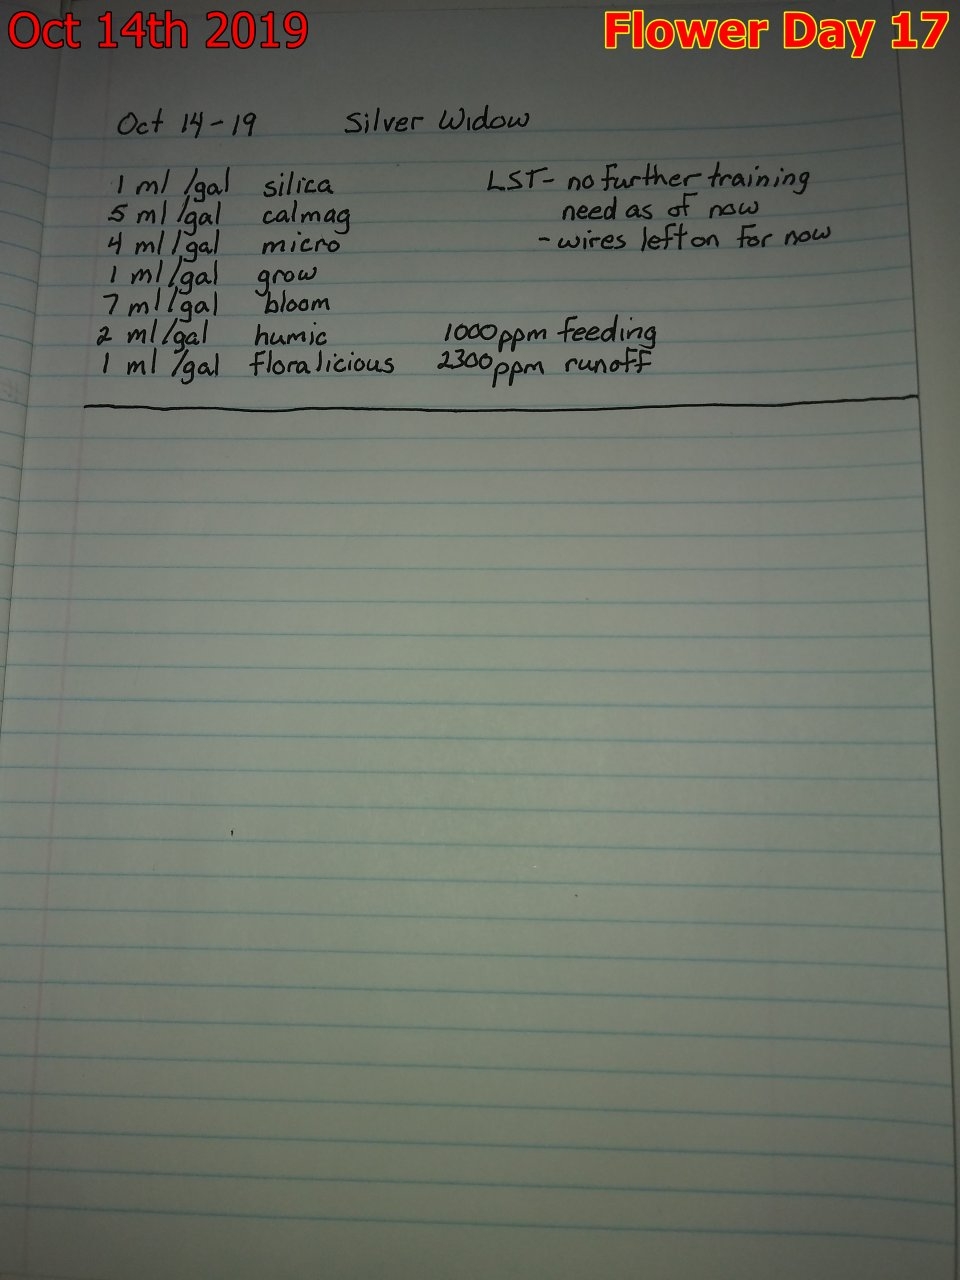 Oct 14th 2019 Flower Day 17
Oct 14-19 Silver Widow
1 ml /gal silica LST- no further training
5 ml /gal calmag need as of now
4 ml /gal micro - wires left on for now
1 ml /gal grow
7 ml /gal bloom
2 ml /gal humic 1000ppm feeding
1 ml /gal floralicious 2300ppm runoff